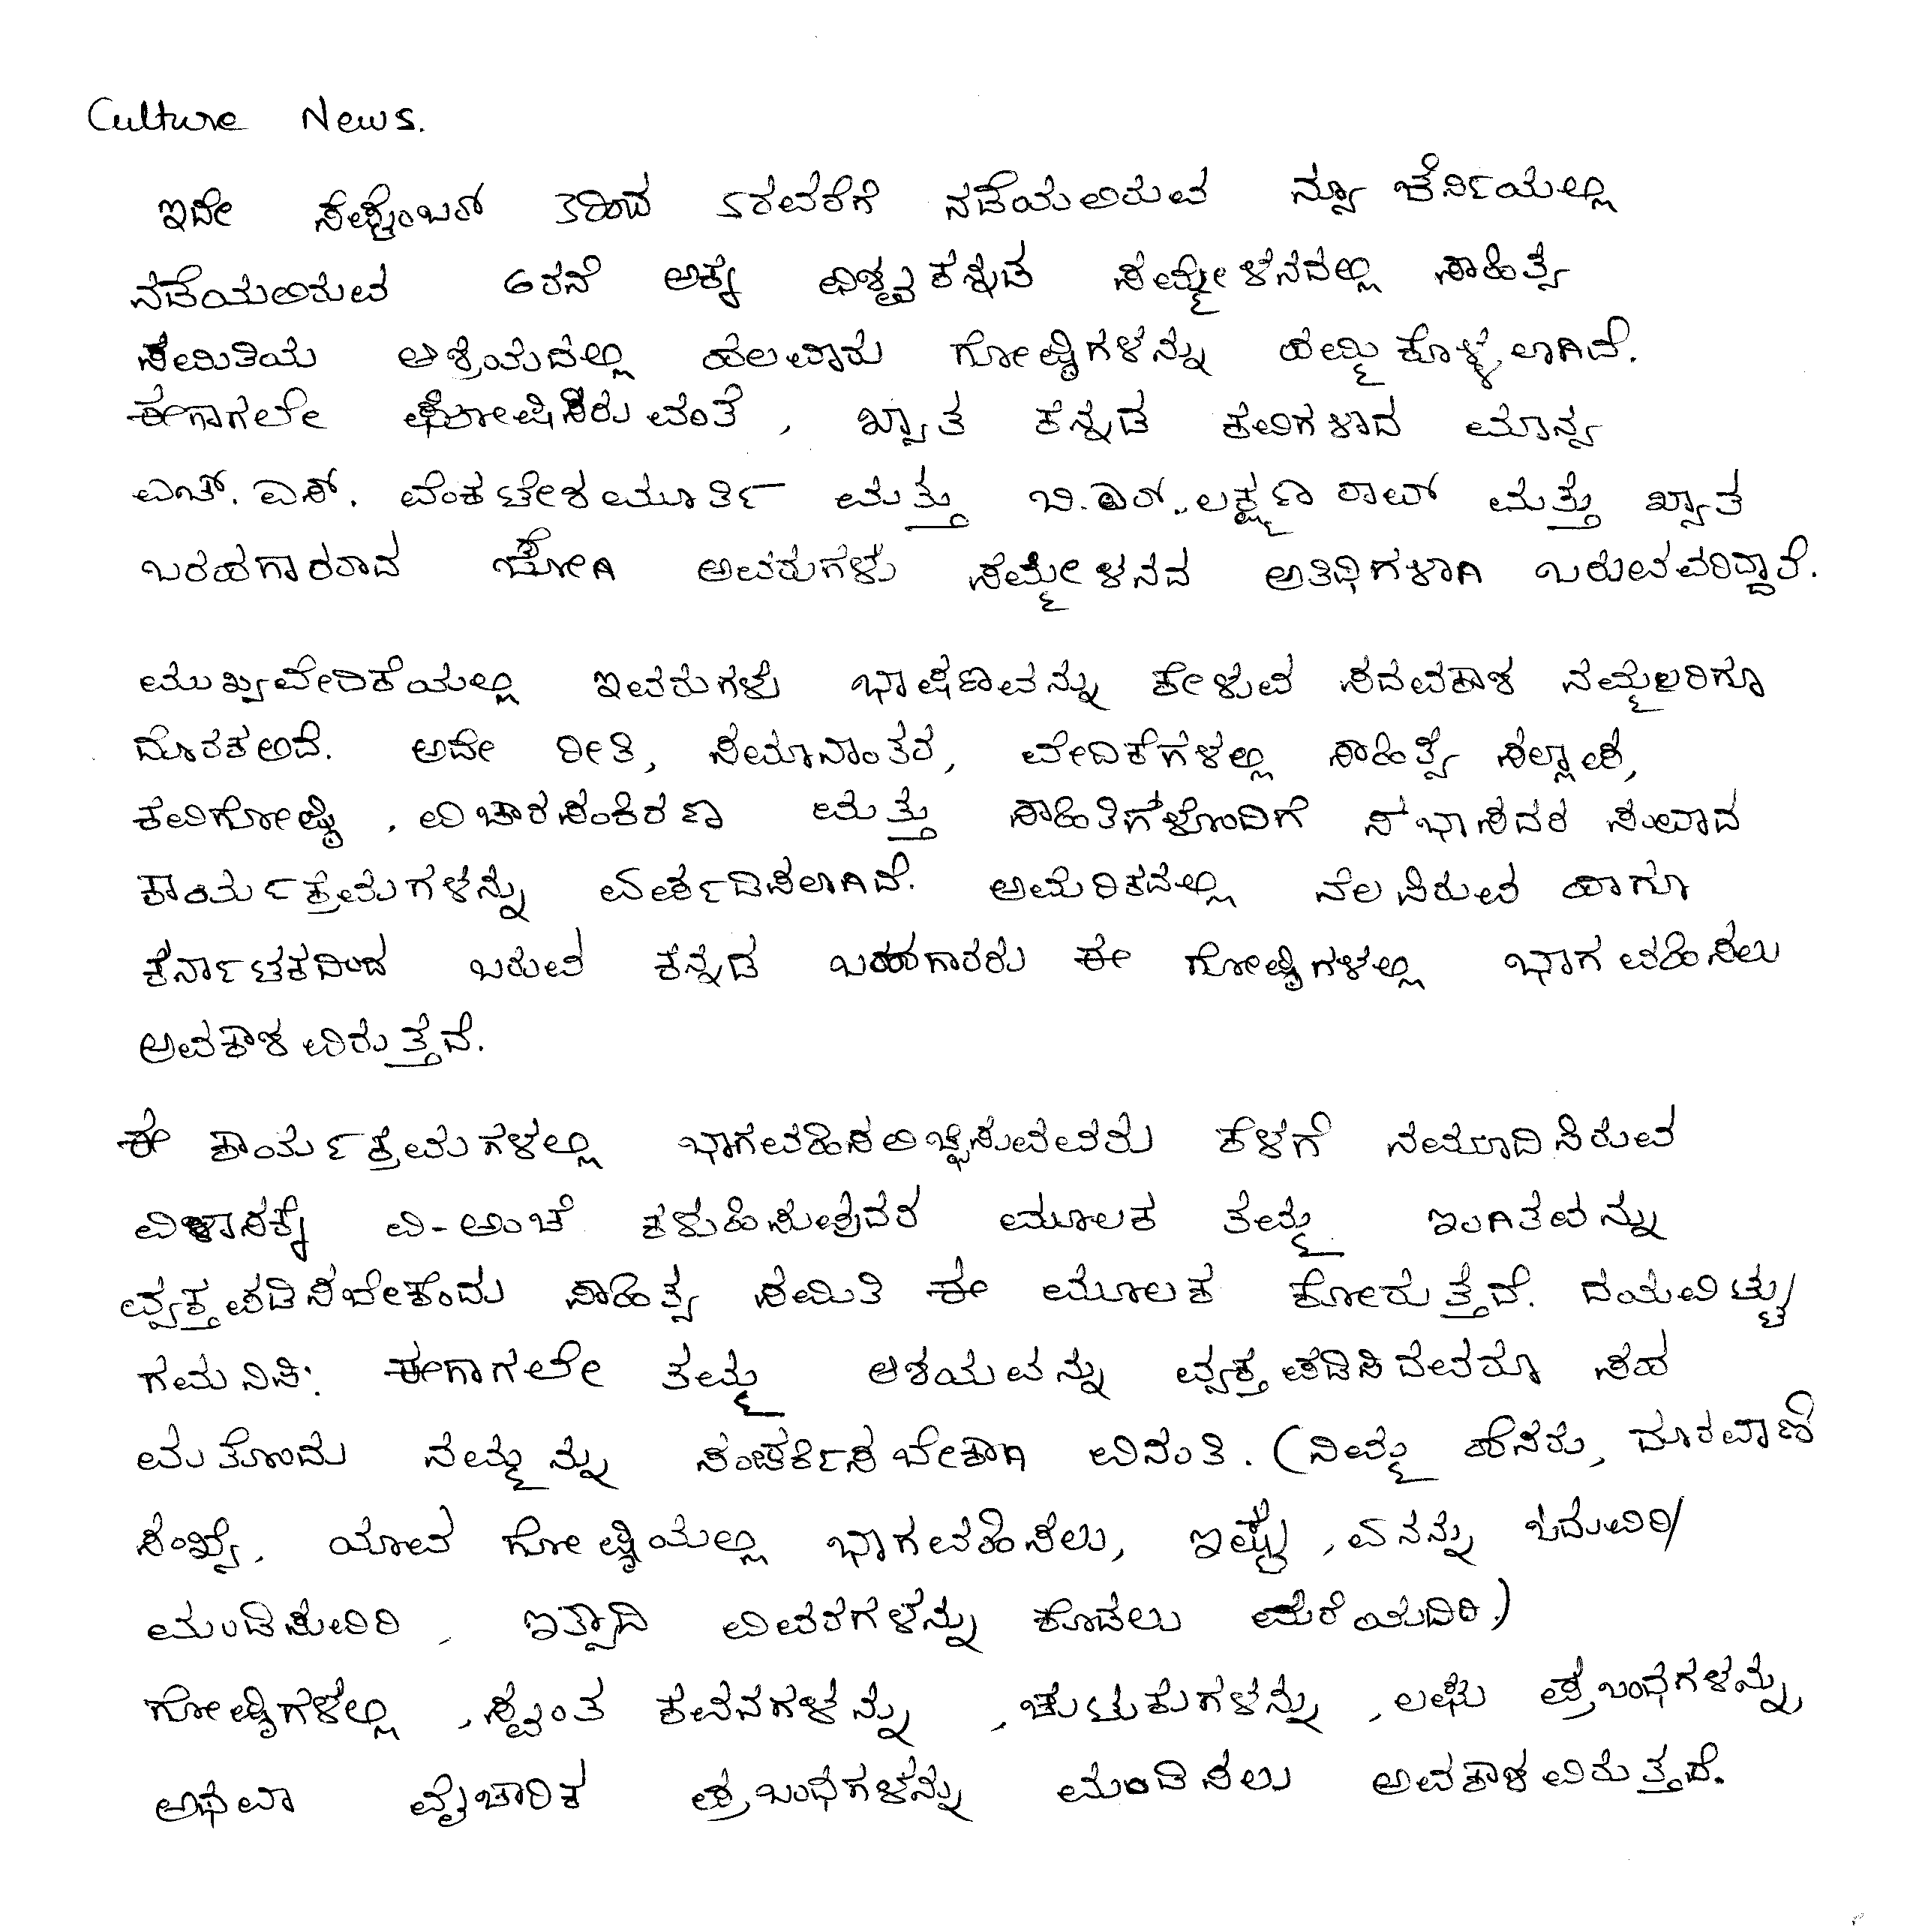 Culture News.
ಇದೇ ಸೆಪ್ಟೆಂಬರ್ 3ರಿಂದ 5ರವರೆಗೆ ನಡೆಯಲಿರುವ ನ್ಯೂ ಜೆರ್ಸಿಯಲ್ಲಿ
ನಡೆಯಲಿರುವ 6ರನೆ ಅಕ್ಕ ವಿಶ್ವಕನ್ನಡ ಸಮ್ಮೇಳನದಲ್ಲಿ ಸಾಹಿತ್ಯ
ಸಮಿತಿಯ ಆಶ್ರಯದಲ್ಲಿ ಹಲವಾರು ಗೋಷ್ಠಿಗಳನ್ನು ಹಮ್ಮಿಕೊಳ್ಳಲಾಗಿದೆ.
ಈಗಾಗಲೇ ಘೋಷಿಸಿರುವಂತೆ, ಖ್ಯಾತ ಕನ್ನಡ ಕವಿಗಳಾದ ಮಾನ್ಯ
ಎಚ್. ಎಸ್. ವೆಂಕಟೇಶಮೂರ್ತಿ ಮತ್ತು ಬಿ.ಆರ್. ಲಕ್ಷ್ಮಣ ರಾವ್ ಮತ್ತು ಖ್ಯಾತ
ಬರಹಗಾರರಾದ ಜೋಗಿ ಅವರುಗಳು ಸಮ್ಮೇಳನದ ಅತಿಥಿಗಳಾಗಿ ಬರುವವರಿದ್ದಾರೆ.
ಮುಖ್ಯವೇದಿಕೆಯಲ್ಲಿ ಇವರುಗಳು ಭಾಷಣವನ್ನು ಕೇಳುವ ಸದವಕಾಶ ನಮ್ಮೆಲ್ಲರಿಗೂ
ದೊರಕಲಿದೆ. ಅದೇ ರೀತಿ, ಸಮಾನಾಂತರ, ವೇದಿಕೆಗಳಲ್ಲಿ ಸಾಹಿತ್ಯ ಸಲ್ಲಾಪ,
ಕವಿಗೋಷ್ಠಿ, ವಿಚಾರಸಂಕಿರಣ ಮತ್ತು ಸಾಹಿತಿಗಳೊಂದಿಗೆ ಸಭಾಸದರ ಸಂವಾದ
ಕಾರ್ಯಕ್ರಮಗಳನ್ನು ಏರ್ಪಡಿಸಲಾಗಿದೆ. ಅಮೆರಿಕದಲ್ಲಿ ನೆಲಸಿರುವ ಹಾಗೂ
ಕರ್ನಾಟಕದಿಂದ ಬರುವ ಕನ್ನಡ ಬರಹಗಾರರು ಈ ಗೋಷ್ಠಿಗಳಲ್ಲಿ ಭಾಗವಹಿಸಲು
ಅವಕಾಶವಿರುತ್ತದೆ.
ಈ ಕಾರ್ಯಕ್ರಮಗಳಲ್ಲಿ ಭಾಗವಹಿಸಲಿಚ್ಛಿಸುವವರು ಕೆಳಗೆ ನಮೂದಿಸಿರುವ
ವಿಳಾಸಕ್ಕೆ ವಿ-ಅಂಚೆ ಕಳುಹಿಸುವುದರ ಮೂಲಕ ತಮ್ಮ ಇಂಗಿತವನ್ನು
ವ್ಯಕ್ತಪಡಿಸಬೇಕೆಂದು ಸಾಹಿತ್ಯ ಸಮಿತಿ ಈ ಮೂಲಕ ಕೋರುತ್ತದೆ. ದಯವಿಟ್ಟು
ಗಮನಿಸಿ: ಈಗಾಗಲೇ ತಮ್ಮ ಆಶಯವನ್ನು ವ್ಯಕ್ತಪಡಿಸಿದವರೂ ಸಹ
ಮತ್ತೊಂದು ನಮ್ಮನ್ನು ಸಂಪರ್ಕಿಸಬೇಕಾಗಿ ವಿನಂತಿ. (ನಿಮ್ಮ ಹೆಸರು, ದೂರವಾಣಿ
ಸಂಖ್ಯೆ, ಯಾವ ಗೋಷ್ಠಿಯಲ್ಲಿ ಭಾಗವಹಿಸಲು, ಇಷ್ಟ, ಏನನ್ನು ಓದುವಿರಿ/
ಮಂಡಿಸುವಿರಿ, ಇತ್ಯಾದಿ ವಿವರಗಳನ್ನು ಕೊಡಲು ಮರೆಯದಿರಿ.)
ಗೋಷ್ಠಿಗಳಲ್ಲಿ, ಸ್ವಂತ ಕವನಗಳನ್ನು, ಚುಟುಕುಗಳನ್ನು, ಲಘು ಪ್ರಬಂಧಗಳನ್ನು
ಅಥವಾ ವೈಚಾರಿಕ ಪ್ರಬಂಧಗಳನ್ನು ಮಂಡಿಸಲು ಅವಕಾಶವಿರುತ್ತದೆ.